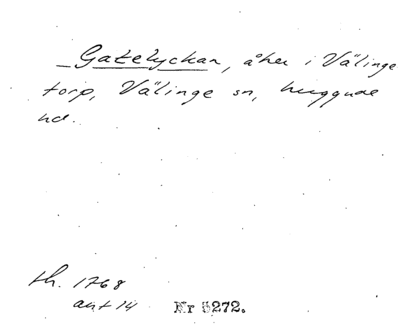 Gatelyckan, åker i Välinge
torp, Välinge sn, Luggude
hd.
th. 1768
akt 14 Nr 5272.